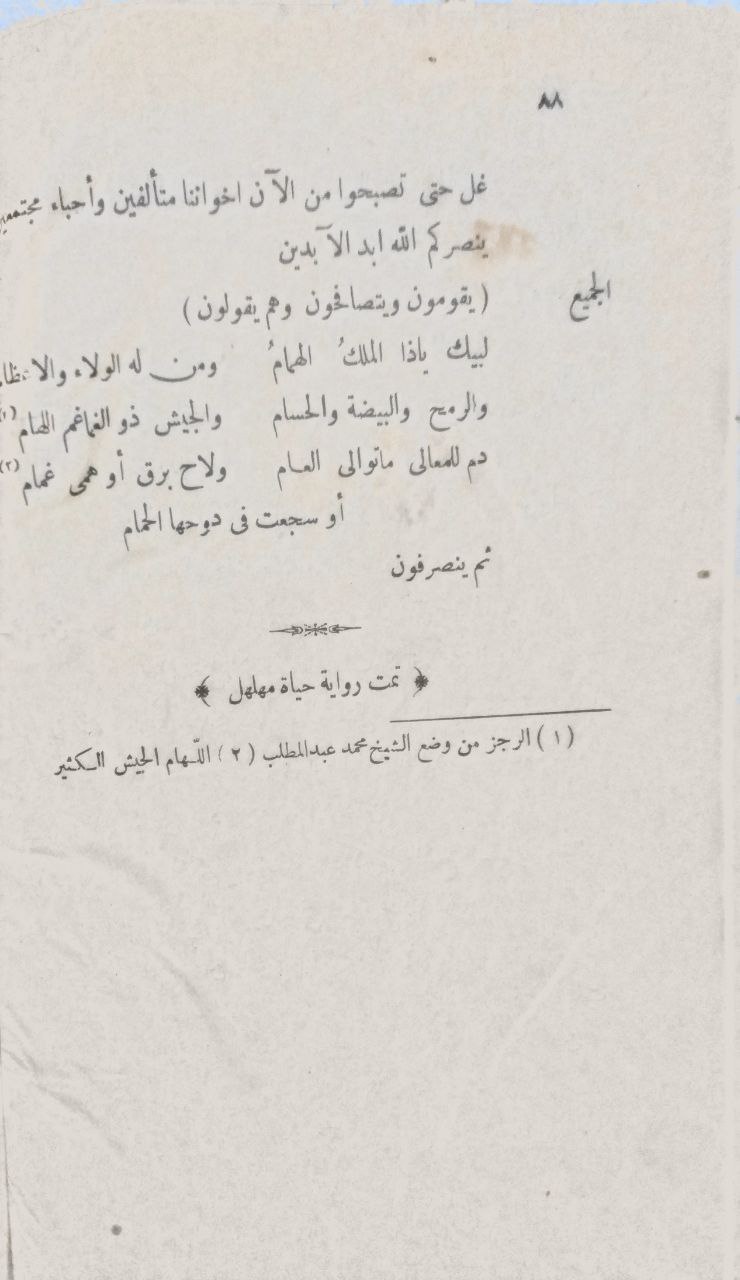 ٨٨
غل حتى تصبحوا من الآن اخواننا متألفين وأحباء مجتمعين
ينصركم الله ابد الآبدين
الجميع (يقومون ويتصافحون وهم يقولون)
لبيك ياذا الملكُ الهمامُ ومن له الولاء
والرمح والبيضة والحسام والجيش ذو الغماغم اللهام (١)
دم للمعالى ماتوالى العام ولاح برق أو همى غمام (٢)
أو سجعت فى دوحها الحمام
ثم ينصرفون
﴿ تمت رواية حياة مهلهل ﴾
(١) الرجز من وضع الشيخ محمد عبدالمطلب (٢) اللّهام الجيش الكثير